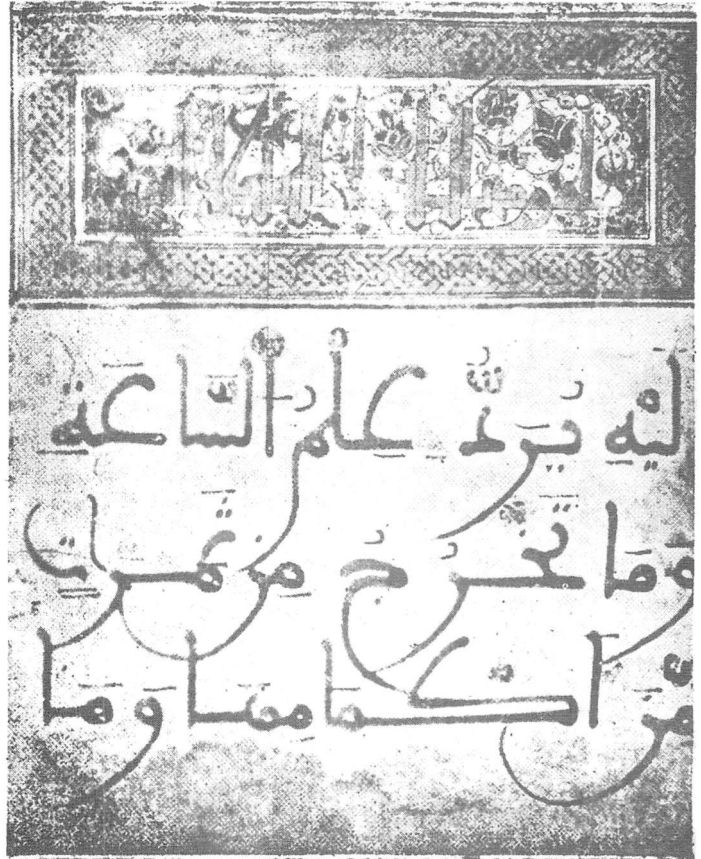 لَيْهِ يُرَدُّ عِلْمُ السَّاعَةِ
وَمَا تَخْرُجُ مِنْ ثَمَرَاتٍ
مِّنْ أَكْمَامِهَا وَمَا